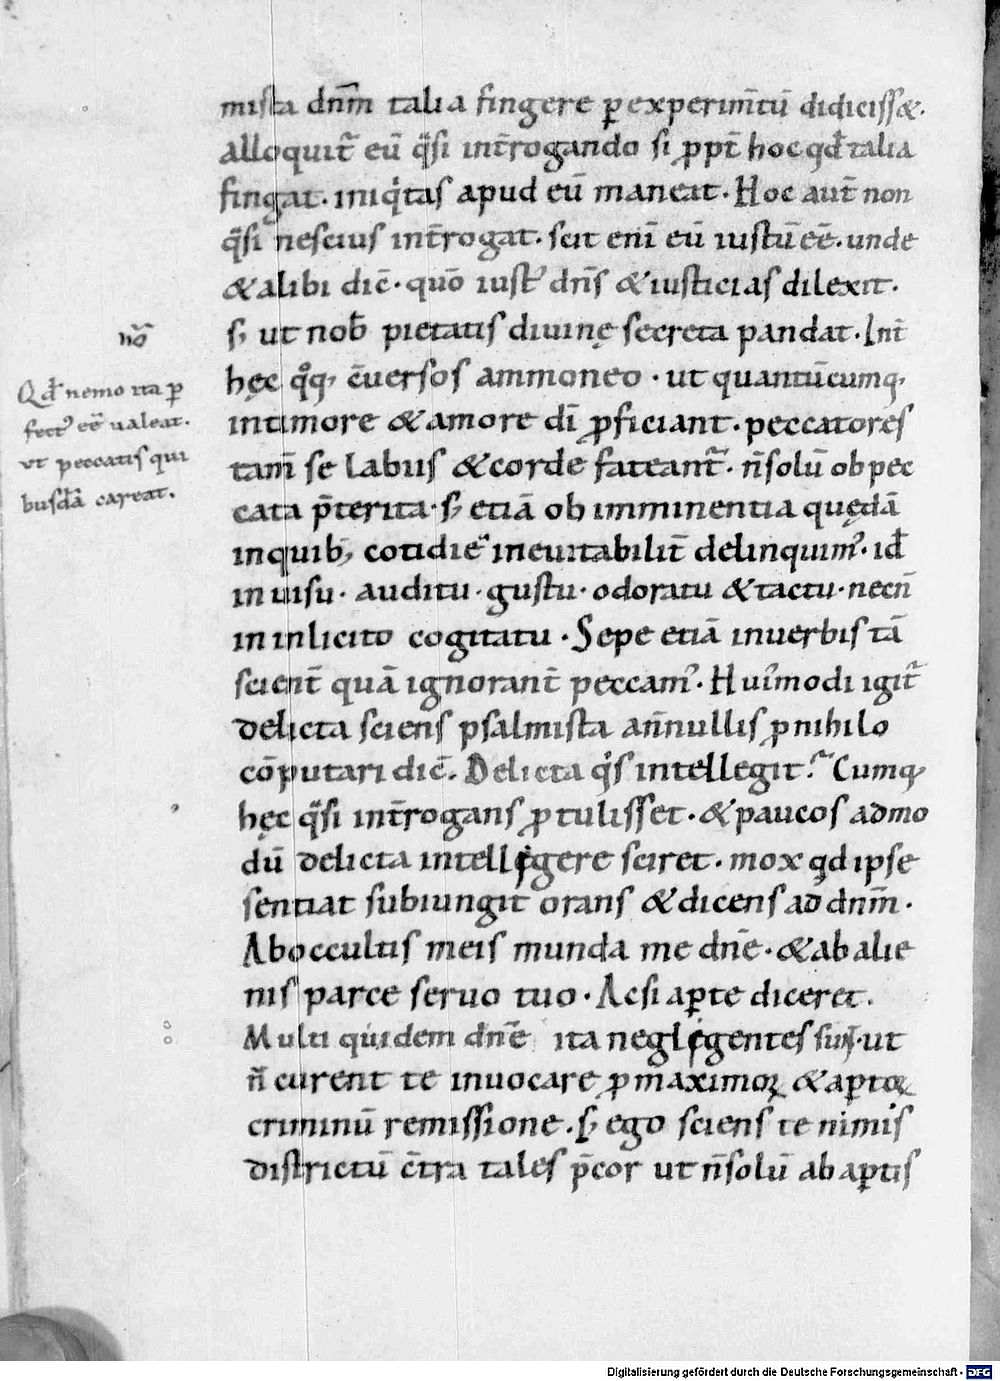 mista dnm̄ talia fingere p̱ experim̄tū didiciss&.
alloquit᷑ eū q̄si int̄rogando si ꝓpt̄ hoc qđ talia
fingat. iniq̇tas apud eū maneat. Hoc aut̄ non
q̄si nescius int̄rogat. scit eni̅ eū iustū eē. unde
& alibi dic̄. quō iust᷒ dn̄s & iusticias dilexit.
s; ut nob̄ pietatis diuinę secreta pandat. Int̄
hęc q̊q; c̄uersos ammoneo. ut quantūcumq;
in timore & amore dī ꝓficiant. peccatores
tam̄ se labiis & corde fateant᷑. n̄ solū ob pec
cata p̄terita. s; etiā ob imminentia quędā
in quib; cotidie ineuitabilit̄ delinquim᷒. id̄
in uisu. auditu. gustu. odoratu & tactu. necn̄
in inlicito cogitatu. Sepe etiā in uerbis tā
scient̄ quā ignorant̄ peccam᷒. Hui᷒modi igit᷑
delicta sciens psalmista a n̄nullis ꝓ nihilo
cōputari dic̄. Delicta q̇s intellegit? Cumq;
hęc q̄si int̄rogans ꝓtulisset. & paucos admo
dū delicta intelligere sciret. mox qđ ipse
sentiat subiungit orans & dicens ad dnm̄.
Ab occultis meis munda me dn̄e. & ab alie
nis parce seruo tuo. Acsi ap̱te diceret.
Multi quidem dn̄e ita negligentes sunt. ut
n̄ curent te inuocare ꝓ maximoꝝ & ap̱toꝝ
criminū remissione. s; ego sciens te nimis
districtū c̄tra tales p̄cor ut n̄ solū ab ap̱tis
nō
Qđ nemo ita p̱
fect᷒ eē ualeat.
ut peccatis qui
busdā careat.
Digitalisierung gefördert durch die Deutsche Forschungsgemeinschaft - DFG